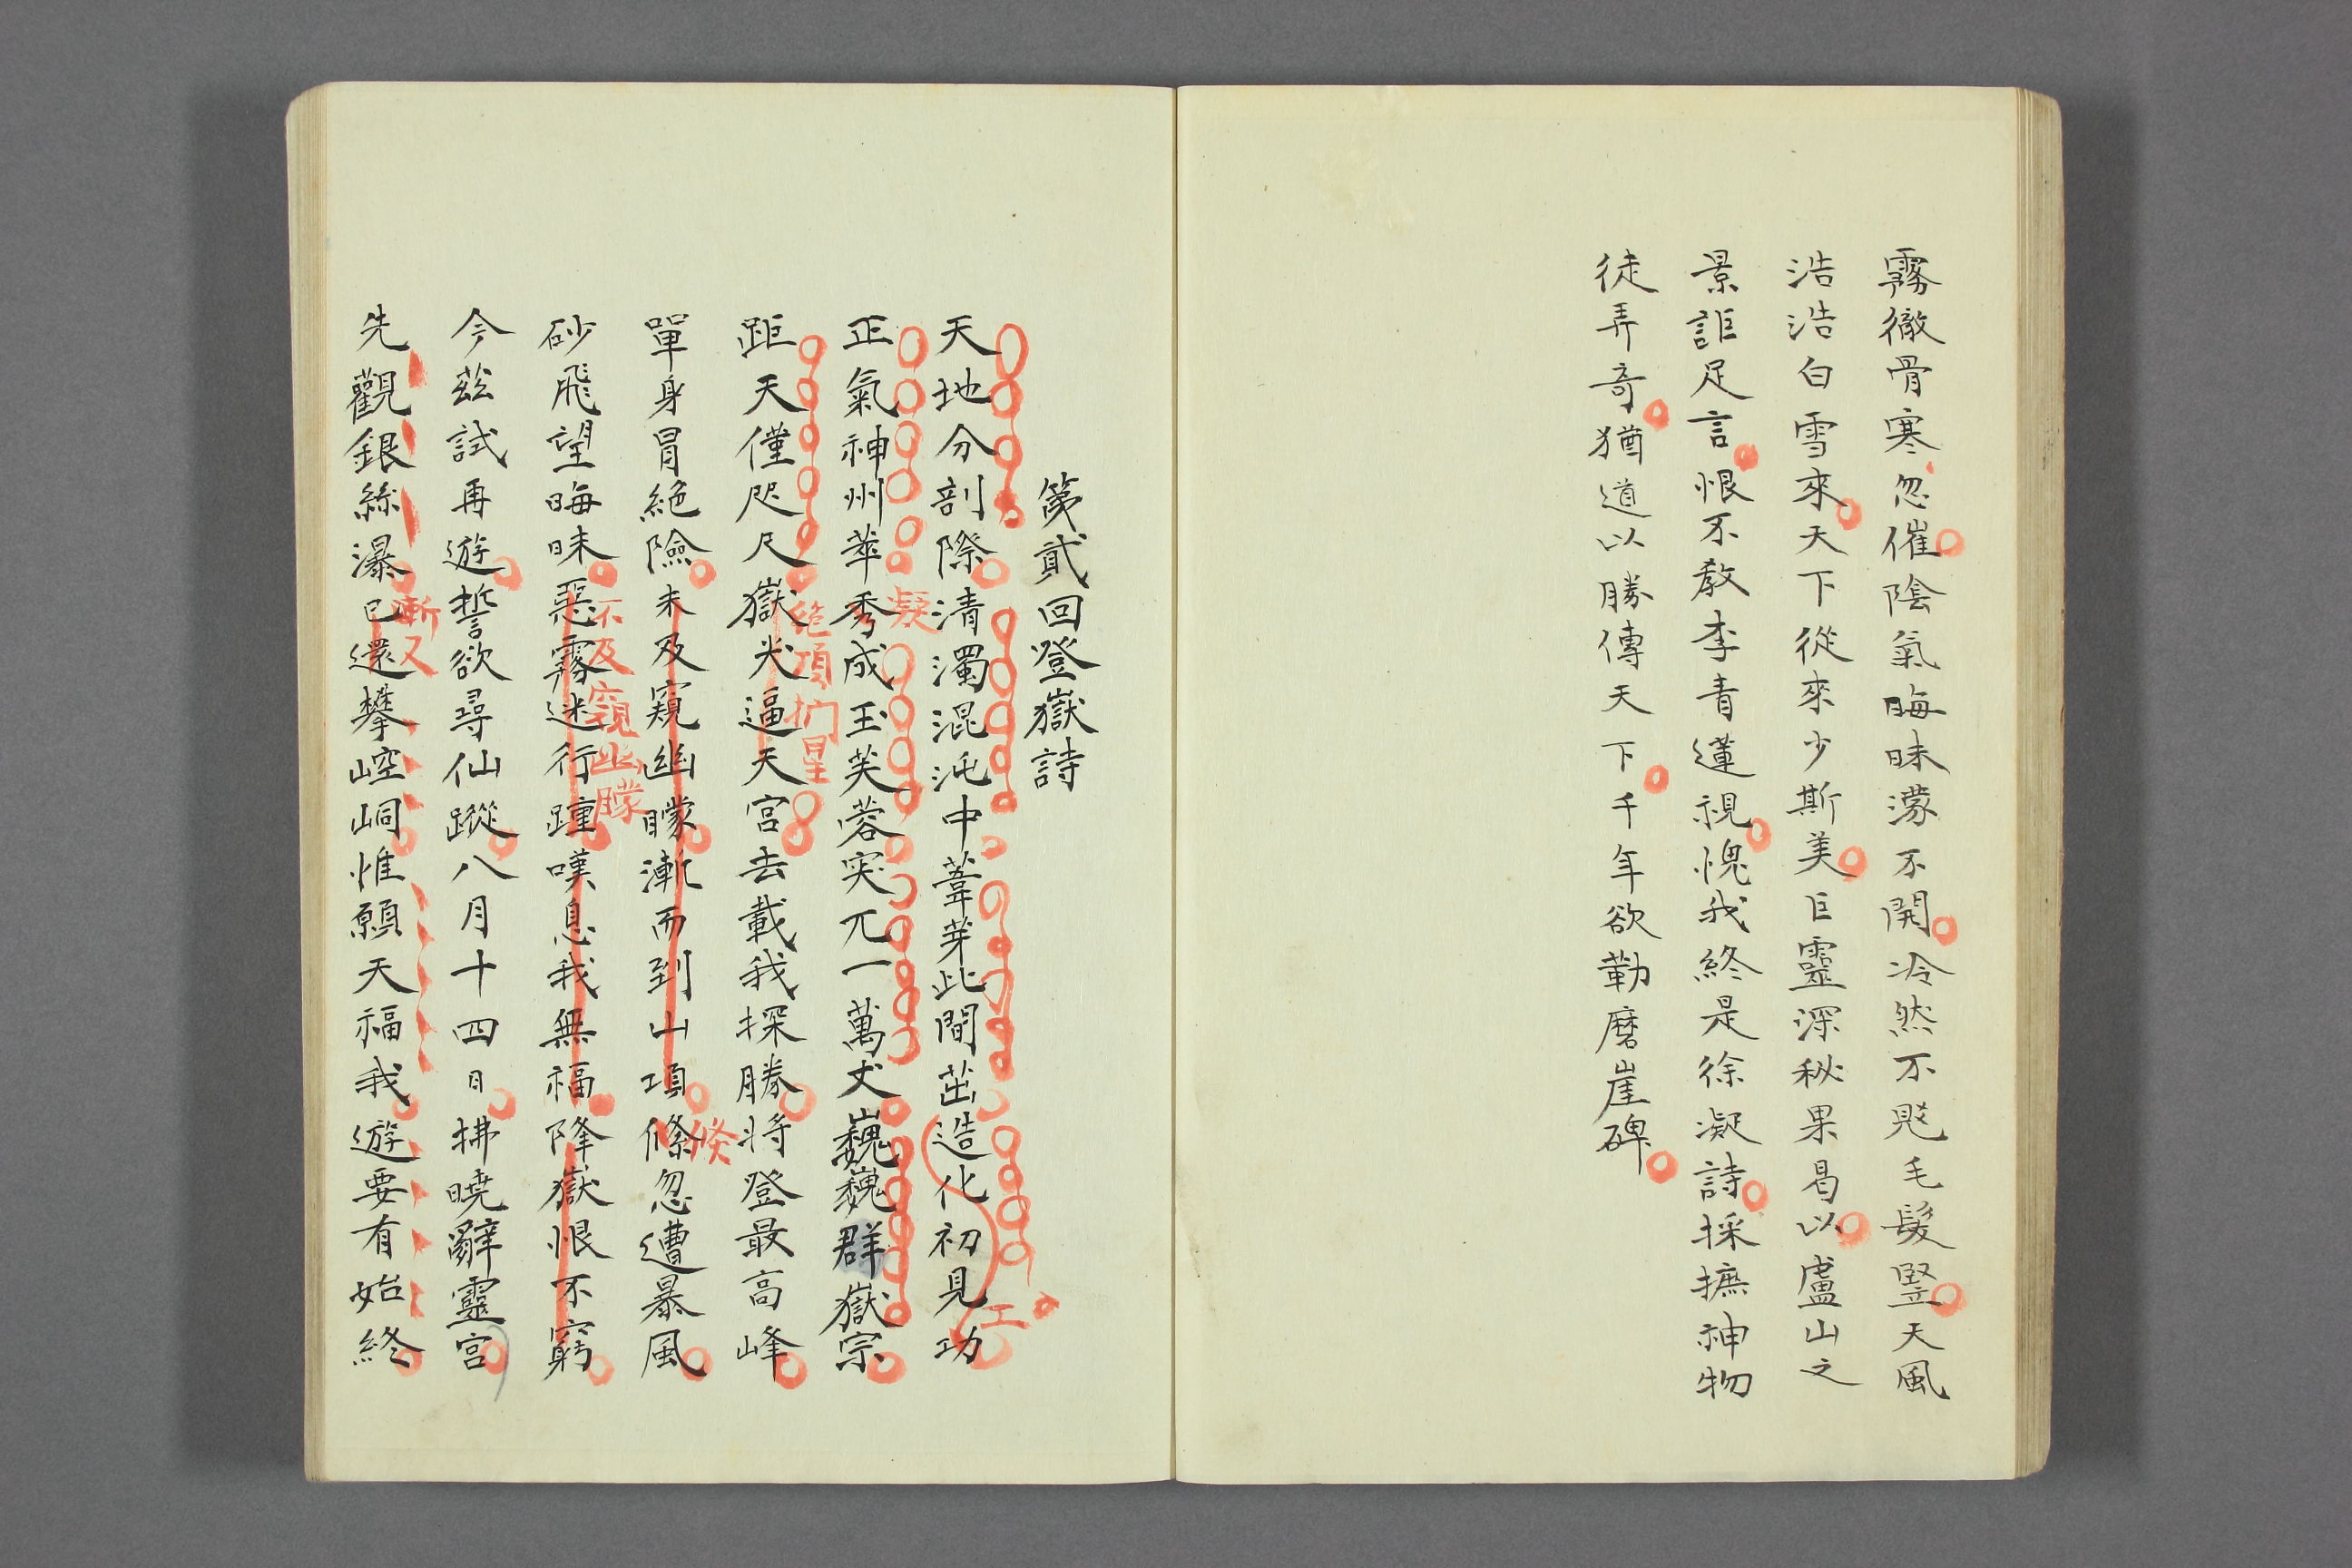 霧徹骨寒忽催陰氣晦昧濛不開冷然不覺毛髮竪天風
浩浩白雪來天下從來少斯美巨靈深秘果曷以盧山之
景詎足言恨不教李青蓮視愧我終是徐凝詩採摭神物
徒弄奇猶道以勝傳天下千年欲勒磨崖碑
第貳回登嶽詩
天地分剖際清濁混沌中葦芽此間茁造化初見功
工
正氣神州萃秀成玉芙蓉突兀一萬丈巍巍群嶽宗
凝
距天僅咫尺嶽尖逼天宮去載我探勝將登最高峰
絶頂捫星
單身冒絶險未及窺幽矇漸而到山項倏忽遭暴風
倏
砂飛望晦昧惡霧迷行踵嘆息我無福降嶽恨不窮
不及窺幽矇
今茲試再遊誓欲尋仙蹤八月十四日拂曉辭靈宮
先觀銀絲瀑已還攀崆峒惟願天福我遊要有始終
漸又